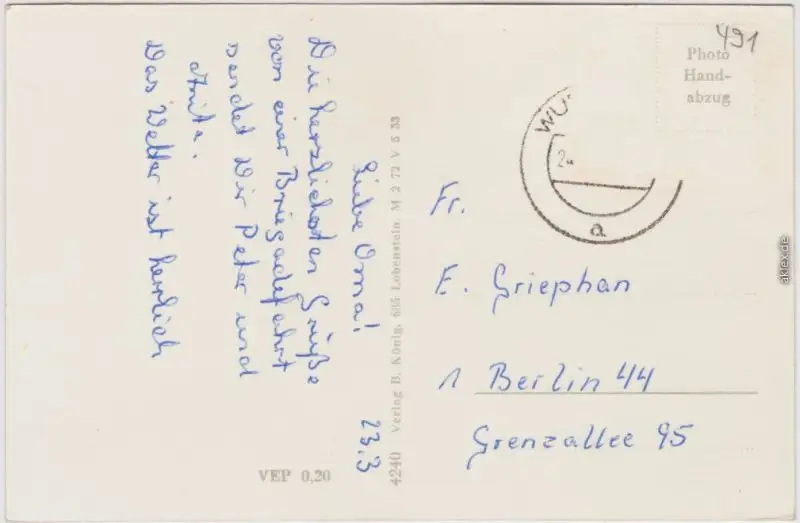 23.3
Liebe Oma!
Die herzlichsten Grüße
von einer Brigadefahrt
sendet Dir Peter und
Anita.
Das Wetter ist herrlich
VEP 0,20
4240 Verlag B. König, 685 Lobenstein. M 2 72 V 5 33
491
Photo
Hand-
abzug
WU
2
a
Fr.
E. Griephan
1 Berlin 44
Grenzallee 95
akpool.de